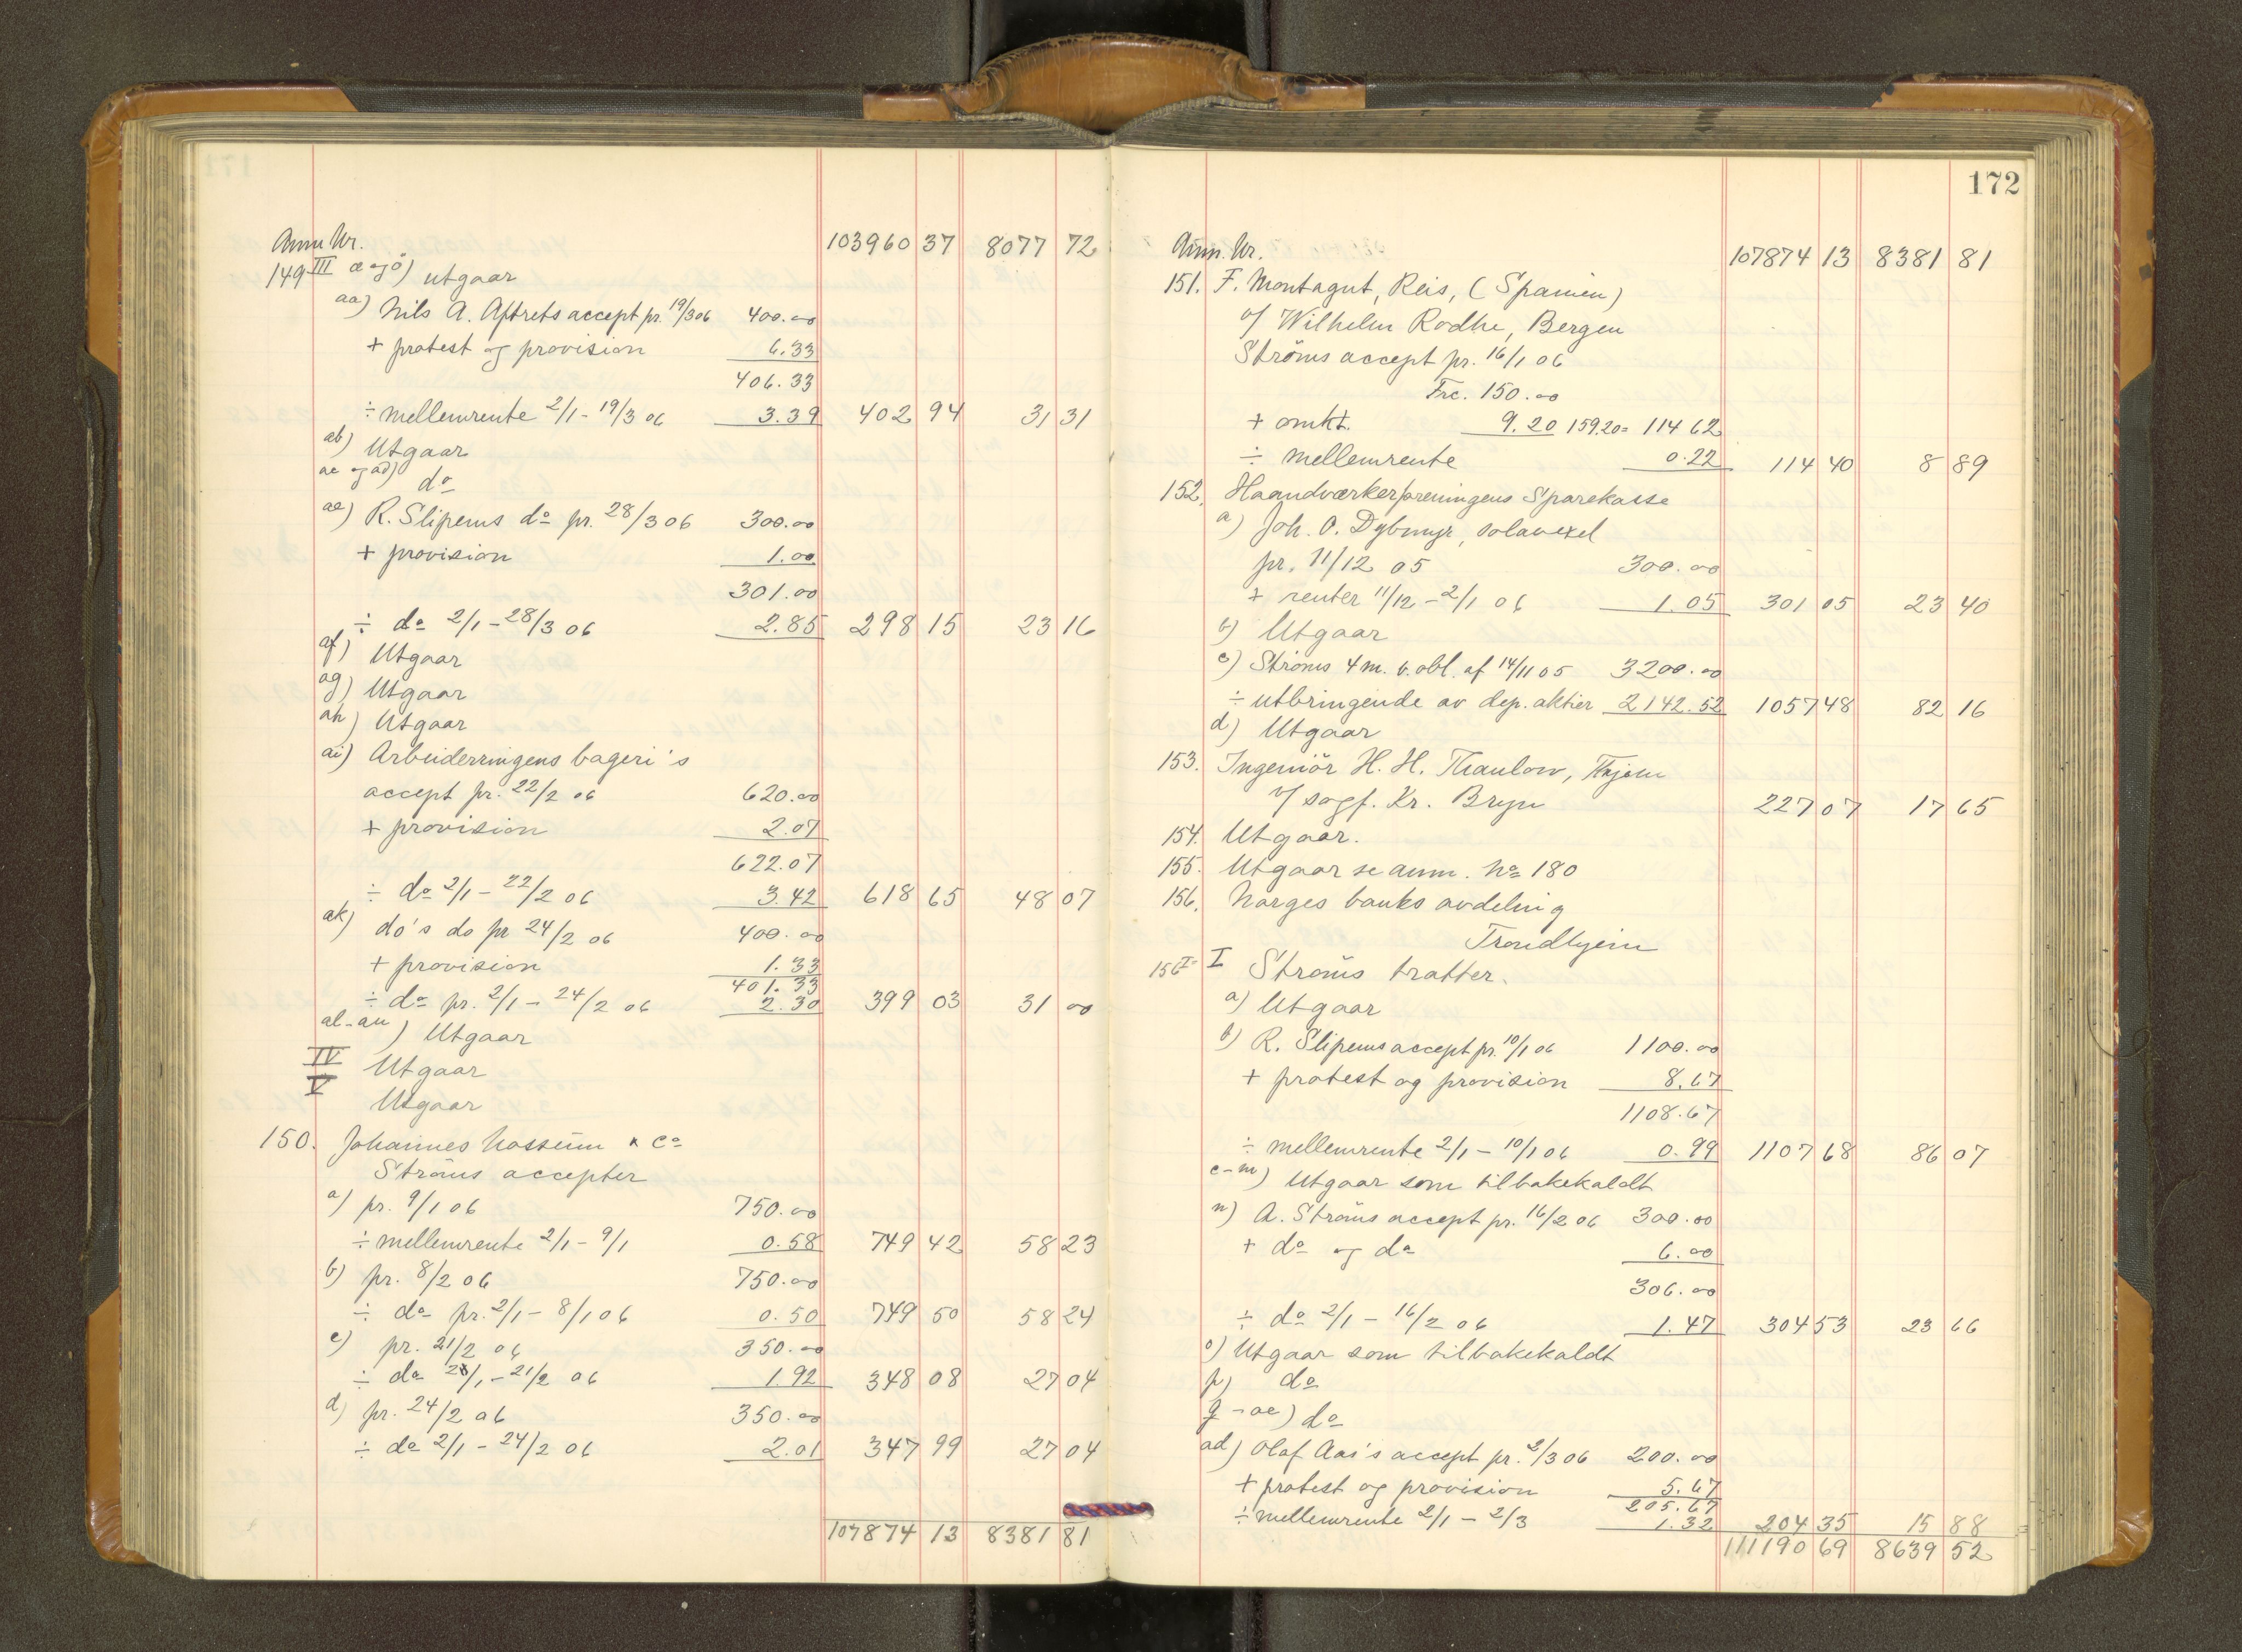 Anm Nr. 103960 37 8077 72
149 III æ og ö) utgaar
aa) Nils A. Aftrets accept pr. 19/3 06 400.00
+ protest og provision 6.33
406.33
÷ mellemrente 2/1 - 19/3 06 3.39 402 94 31 31
ab) Utgaar
ac og ad) do
ae) R. Slipems do pr. 28/3 06 300.00
+ provision 1.00
301.00
÷ do 2/1 - 28/3 06 2.85 298 15 23 16
af) Utgaar
ag) Utgaar
ah) Utgaar
ai) Arbeiderringens bageri's
accept pr. 22/2 06 620.00
+ provision 2.07
622.07
÷ do 2/1 - 22/2 06 3.42 618 65 48 07
ak) do's do pr 24/2 06 400.00
+ provision 1.33
401.33
÷ do pr. 2/1 - 24/2 06 2.30 399 03 31 00
al - au) Utgaar
IV Utgaar
V Utgaar
150. Johannes Mossum & Co
Ströms accepter
a) pr. 9/1 06 750.00
÷ mellemrente 2/1 - 9/1 0.58 749 42 58 23
b) pr. 8/2 06 750.00
÷ do pr. 2/1 - 8/1 06 0.50 749 50 58 24
c) pr. 21/2 06 350.00
÷ do 2/1 - 21/2 06 1.92 348 08 27 04
d) pr. 24/2 06 350.00
÷ do 2/1 - 24/2 06 2.01 347 99 27 04
107874 13 8381 81
172
Anm. Nr. 107874 13 8381 81
151. F. Montagut, Reis, (Spanien)
v/ Wilhelm Rodhe, Bergen
Ströms accept pr. 16/1 06
Frc. 150.00
+ omkt. 9.20 159.20 = 114 62
÷ mellemrente 0.22 114 40 8 89
152. Haandværkerforeningens Sparekasse
a) Joh. O. Dybmyr, solavexel
pr. 11/12 05 300.00
+ renter 11/12 - 2/1 06 1.05 301 05 23 40
b) Utgaar
c) Ströms 4 m. b. obl. af 14/11 05 3200.00
÷ utbringende av dep. aktier 2142.52 1057 48 82 16
d) Utgaar
153. Ingeniör H. H. Thaulow, Thjem
v/ sagf. Kr. Bryn 227 07 17 65
154. Utgaar.
155. Utgaar se anm. No 180
156. Norges banks avdeling
Trondhjem
156 I I Ströms tratter.
a) Utgaar
b) R. Slipems accept pr. 10/1 06 1100.00
+ protest og provision 8.67
1108.67
÷ mellemrente 2/1 - 10/1 06 0.99 1107 68 86 07
c - m) Utgaar som tilbakekaldt
n) A. Ströms accept pr. 16/2 06 300.00
+ do og do 6.00
306.00
÷ do 2/1 - 16/2 06 1.47 304 53 23 66
o) Utgaar som tilbakekaldt
p) do
q - ac) do
ad) Olaf Aas's accept pr. 2/3 06 200.00
+ protest og provision 5.67
205.67
÷ mellemrente 2/1 - 2/3 1.32 204 35 15 88
111190 69 8639 52